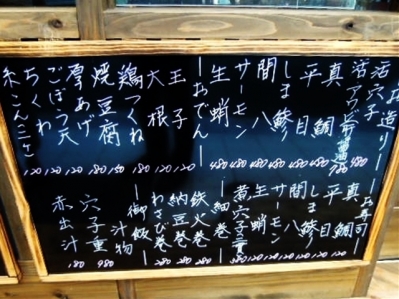 お造り
活穴子 480
活アワビ 780
真鯛 480
平目 480
しま鯵 480
間八 480
サーモン 480
生蛸 480
一おでん一
玉子 120
大根 120
鶏つくね 180
焼豆腐 150
厚あげ 180
ごぼう天 120
ちくわ 120
糸こんにゃく 120
一お寿司
真鯛 120
平目 120
しま鯵 120
間八 120
サーモン 120
生蛸 120
煮穴子
一細巻
鉄火巻 280
納豆巻 280
わさび巻 280
一御飯
汁物
穴子重 980
赤出汁 180